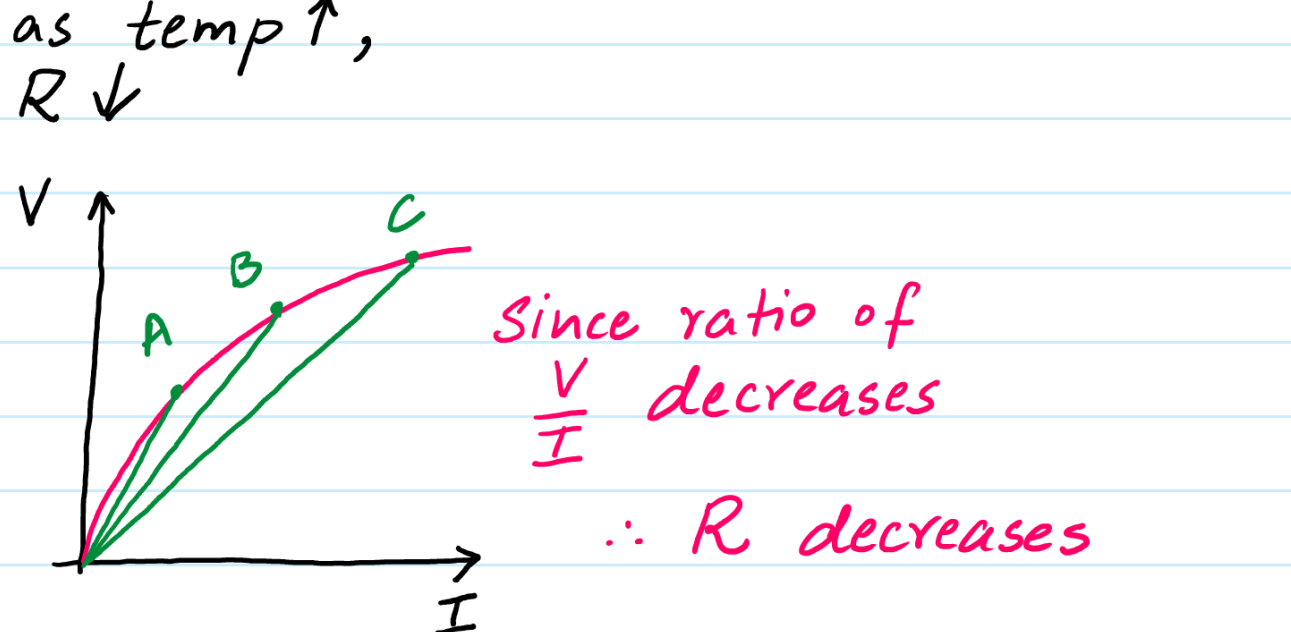 as temp ↑,
R ↓
V
C
B
A
since ratio of
V/I decreases
∴ R decreases
I